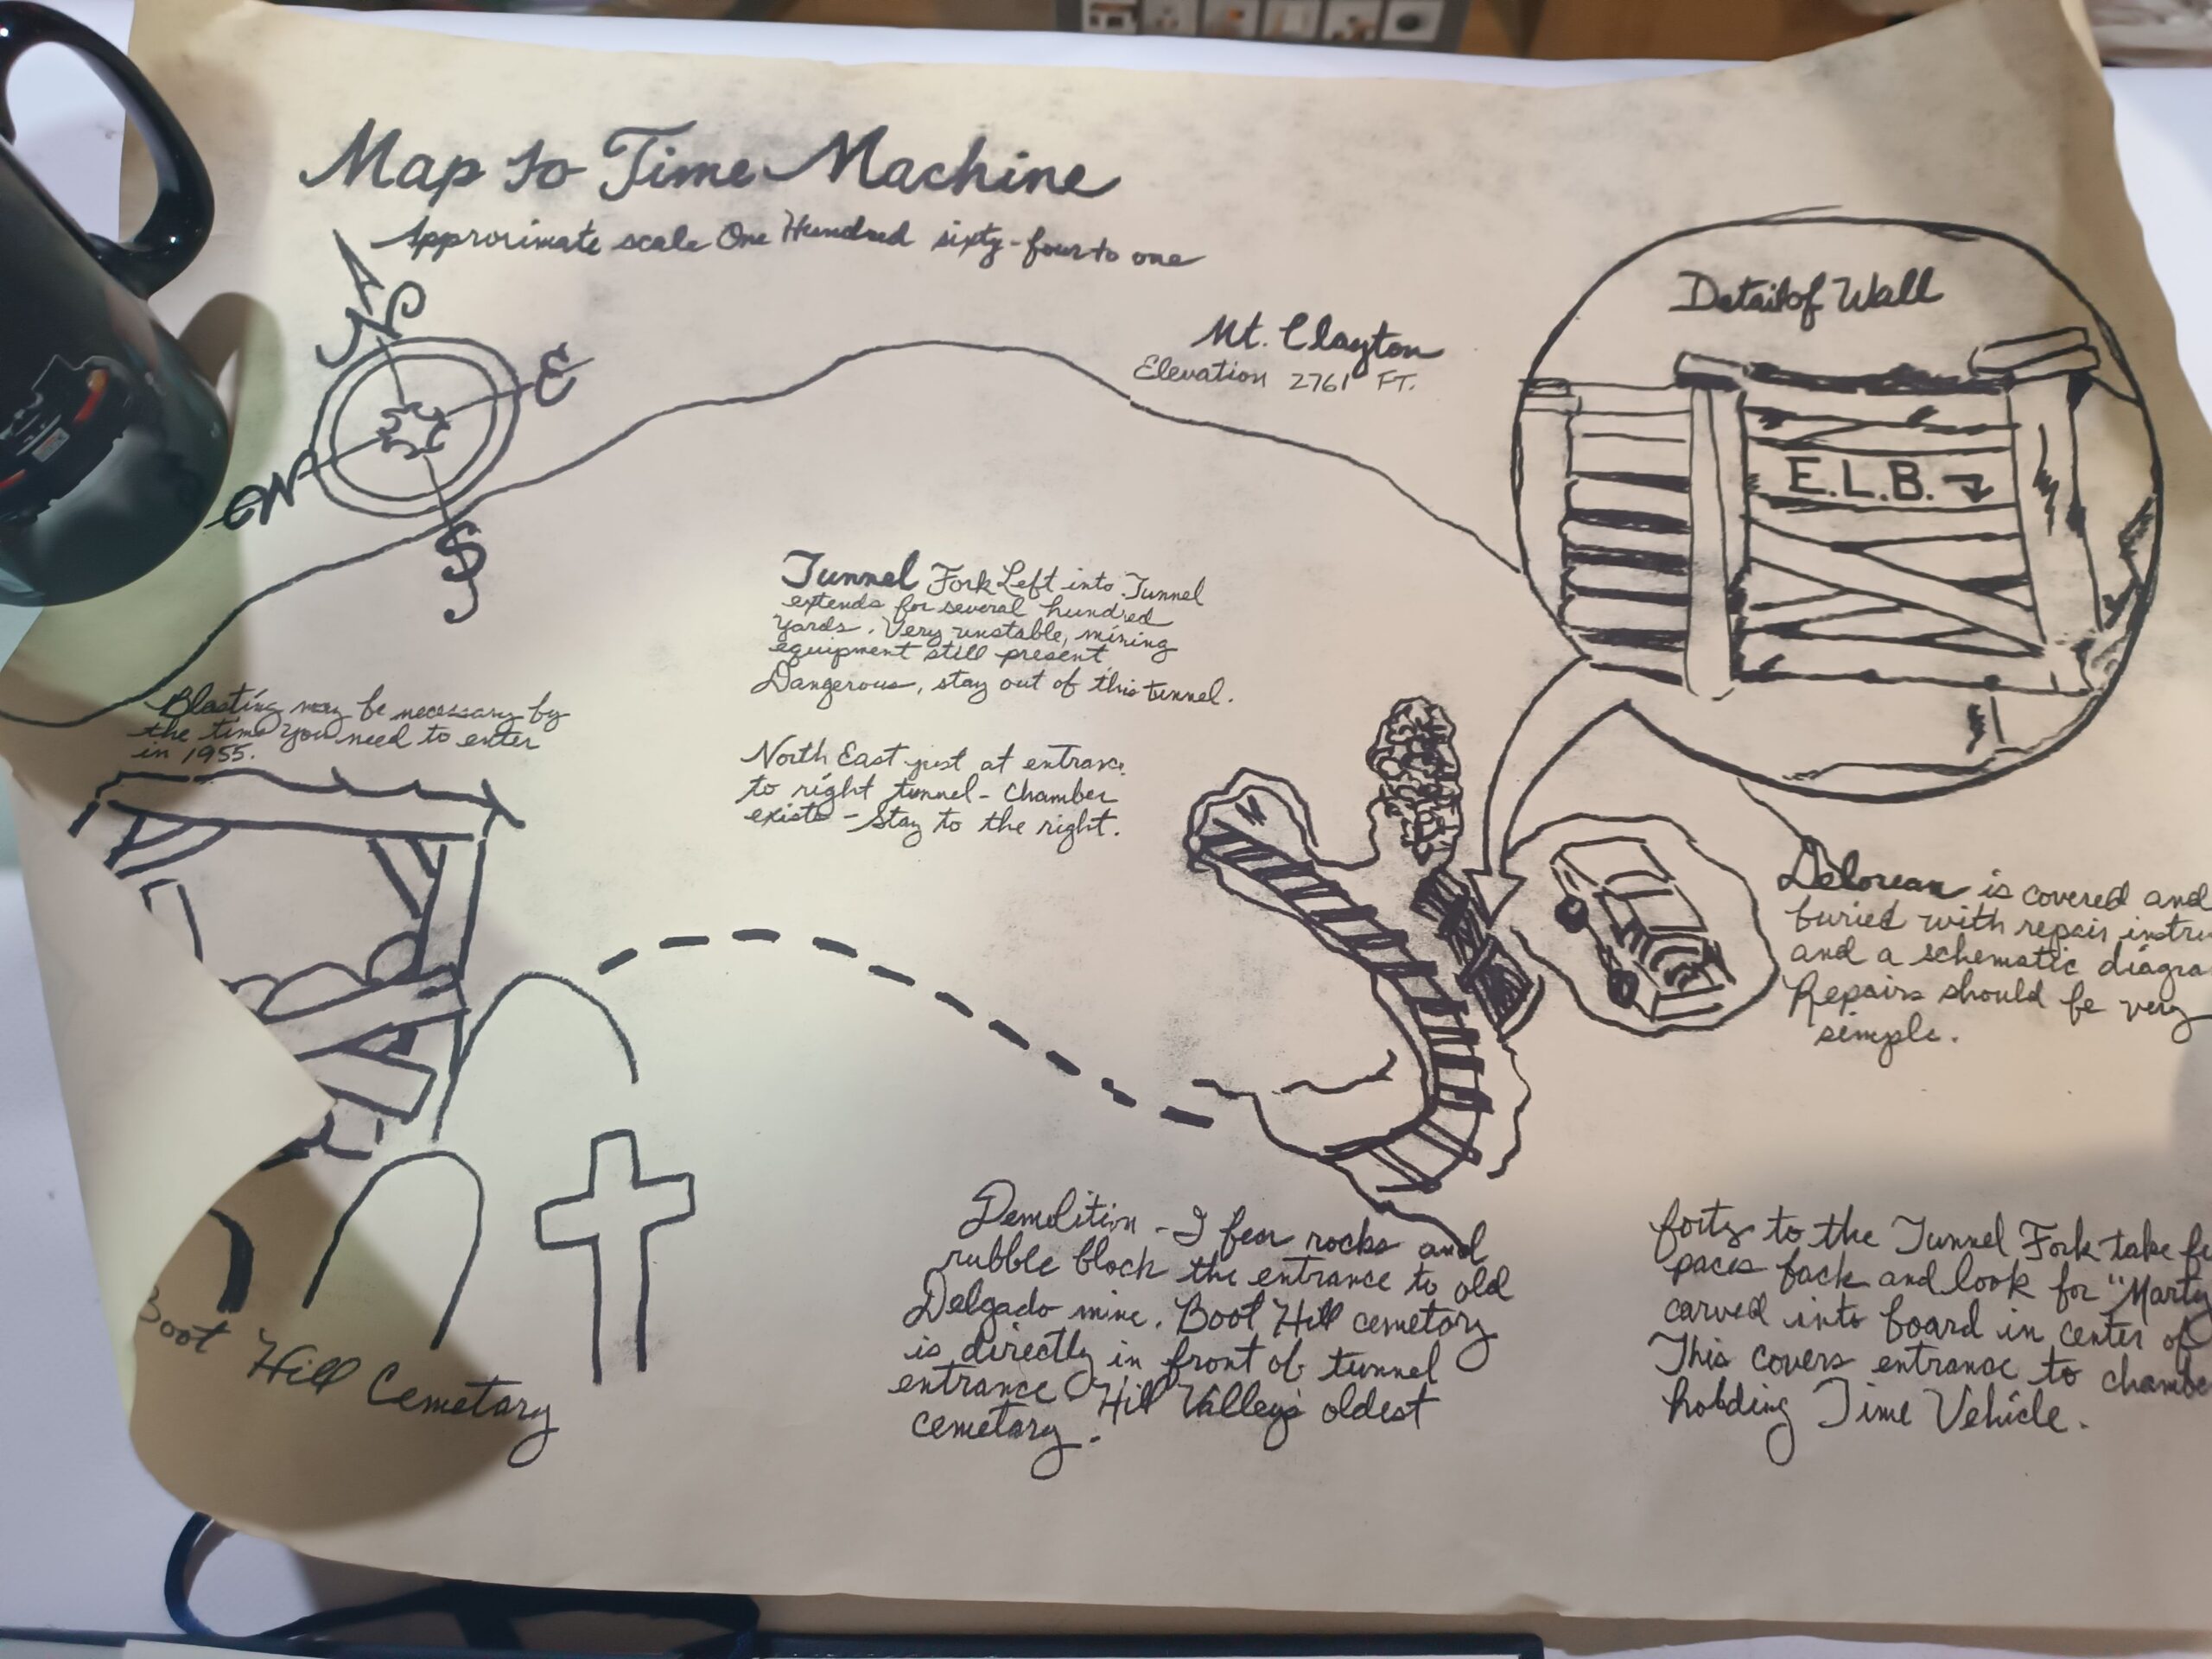 Map to Time Machine
Approximate scale One Hundred sixty-four to one
N
E
W
S
Mt. Clayton
Elevation 2761 FT.
Detail of Wall
E.L.B.
Tunnel Fork Left into Tunnel
extends for several hundred
yards. Very unstable, mining
equipment still present
Dangerous, stay out of this tunnel.
Blasting may be necessary by
the time you need to enter
in 1955.
North East just at entrance
to right tunnel - chamber
exists - Stay to the right.
Delorean is covered and
buried with repair
and a schematic
Repairs should be very
simple.
Boot Hill Cemetary
Demolition - I fear rocks and
rubble block the entrance to old
Delgado mine. Boot Hill cemetary
is directly in front of tunnel
entrance. Hill Valleys oldest
cemetary.
forty to the Tunnel Fork take
paces back and look for "Marty
carved into board in center of
This covers entrance to
holding Time Vehicle.